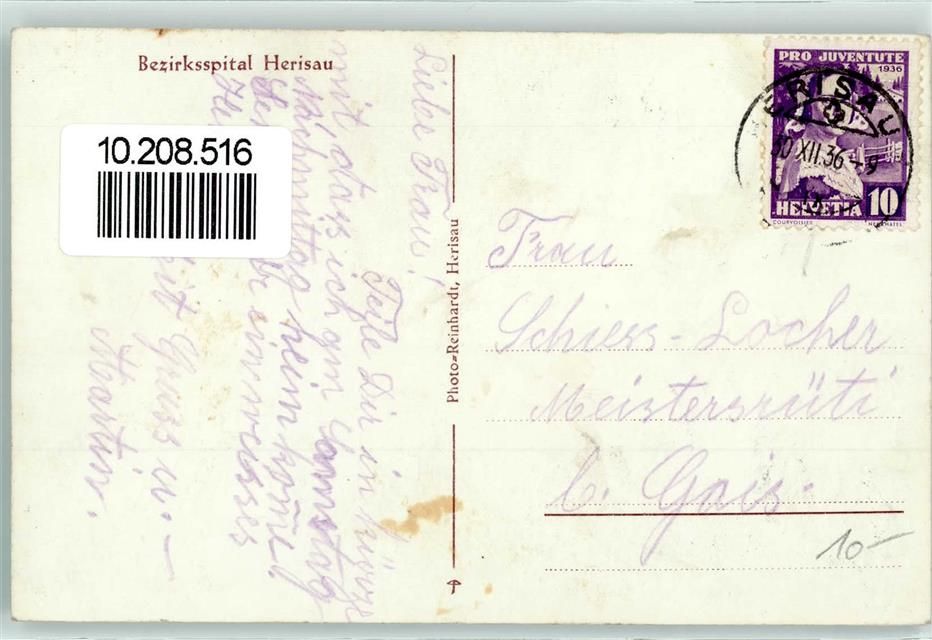 Bezirksspital Herisau
10.208.516
Liebe Frau!
Teile Dir in Kürze
mit, dass ich am Samstag
Nachmittag heim komme.
ein weisses
Gruss u.
Martin.
Photo-Reinhardt, Herisau
PRO JUVENTUTE
1936
HERISAU
30 XII.36-9
HELVETIA 10
COURVOISIER
NEUCHATEL
Frau
Schiess-Locher
Meistersrüti
b. Gais.
10-